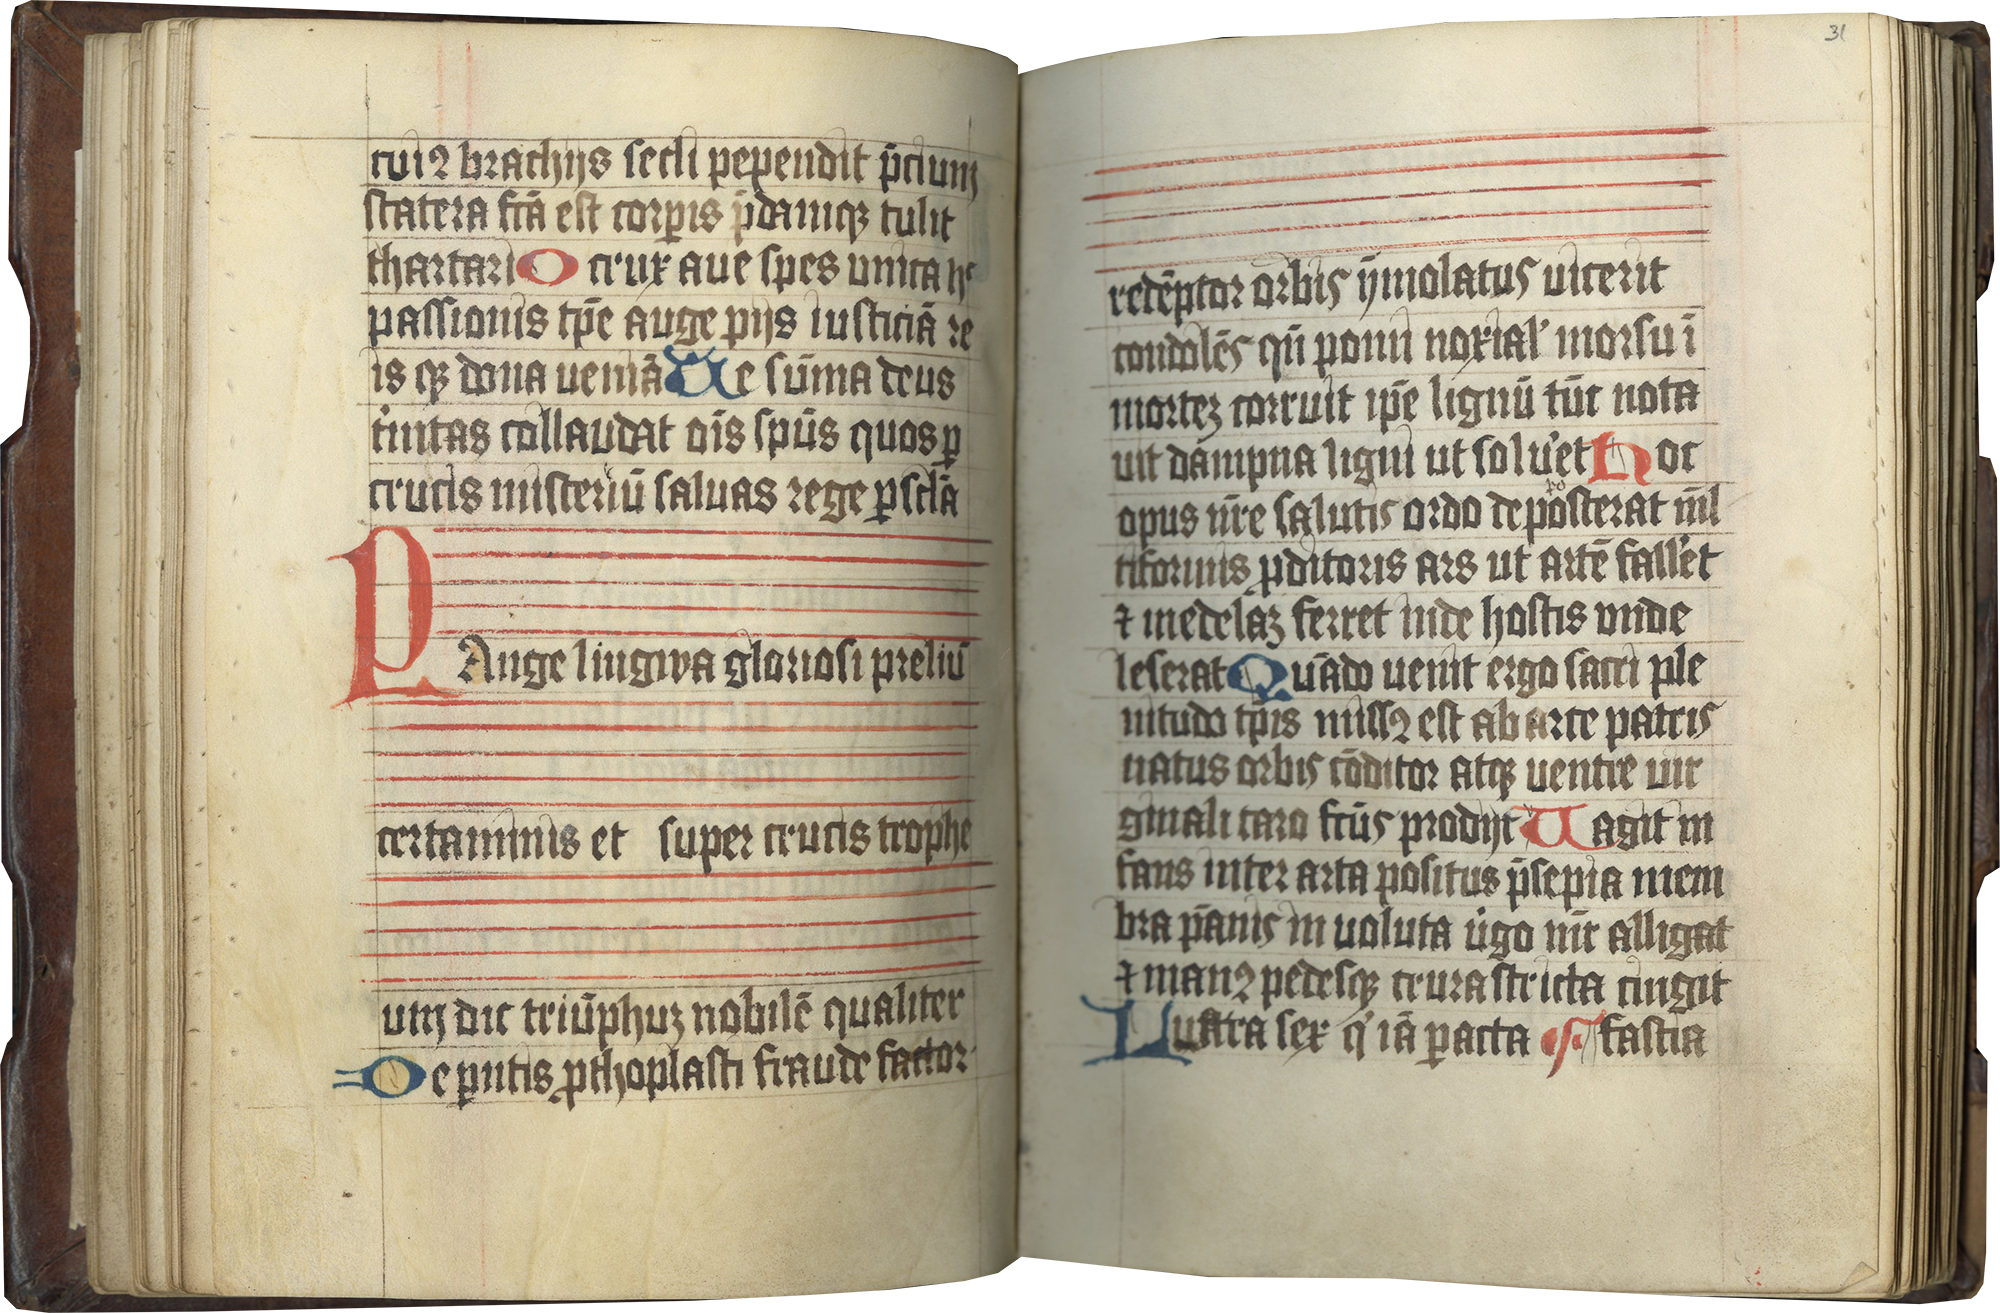 cui9 brachijs secli pependit p̄cium
statera fc̄a est corp̄is p̄damq3 tulit
thartari O crux aue spes unica hͦ
passionis tp̄e auge pijs iusticiā re
is q3 dona ueniā Te sūma deus
t'nitas collaudat oīs sp̄us quos ꝑ
crucis misteriū saluas rege ꝑ scl̄a
PAnge lingwa gloriosi preliū
certaminis et super crucis trophe
um dic triūphuz nobilē qualiter
De pntis ꝓthoplasti fraude factor
31
redēptor orbis ymolatus uicerit
condolēs qn̄ pomi noxial' morsu ī
mortez corruit ip̄e lignū tūc nota
uit dampna ligni ut solu'et Hoc
opus nr̄e salutis ordo deposcerat ml̄
tiformis ꝓditoris ars ut artē fall'et
⁊ medelaz ferret inde hostis unde
leserat Quādo uenit ergo sacri ple
nitudo tp̄is miss9 est ab arce patris
natus orbis cōditor atq3 uentre uir
ginali caro fc̄us prodijt Uagit in
fans inter arta positus p̄sepia mem
bra pānis in uoluta u'go mr̄ alligat
⁊ man9 pedesq3 crura stricta cingit
Lustra sex q' iā ꝑacta fascia